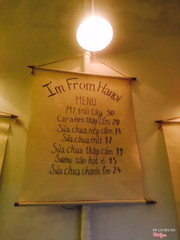 I'm From Hanoi
MENU
Mỳ trái cây 50
Caramen thập cẩm 20
Sữa chua nếp cẩm 14
Sữa chua mít 17
Sữa chua thập cẩm 19
Sương sáo hạt é 15
Sữa chua chanh leo 24